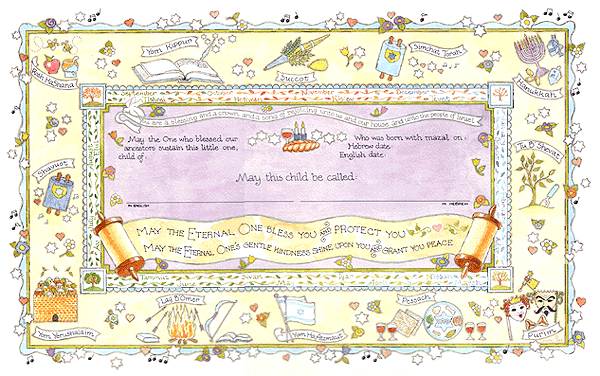 Yom Kippur
Succot
Simchat Torah
Rosh HaShana
Hanukkah
September October November December
Tishrei Heshvan Kislev Tevet
You are a blessing and a crown, and a song of rejoicing unto us and our house and unto the people of Israel.
May the One who blessed our
ancestors sustain this little one,
child of:
Who was born with mazal on:
Hebrew date:
English date:
May this child be called:
IN ENGLISH
IN HEBREW
Shavuot
Tu B'Shevat
MAY THE ETERNAL ONE BLESS YOU AND PROTECT YOU
MAY THE ETERNAL ONE'S GENTLE KINDNESS SHINE UPON YOU & GRANT YOU PEACE
Tammuz Sivan Iyar Nissan
June
Yom Yerushalaim
Lag B'Omer
Yom HaAtzmaut
Pessach
Purim